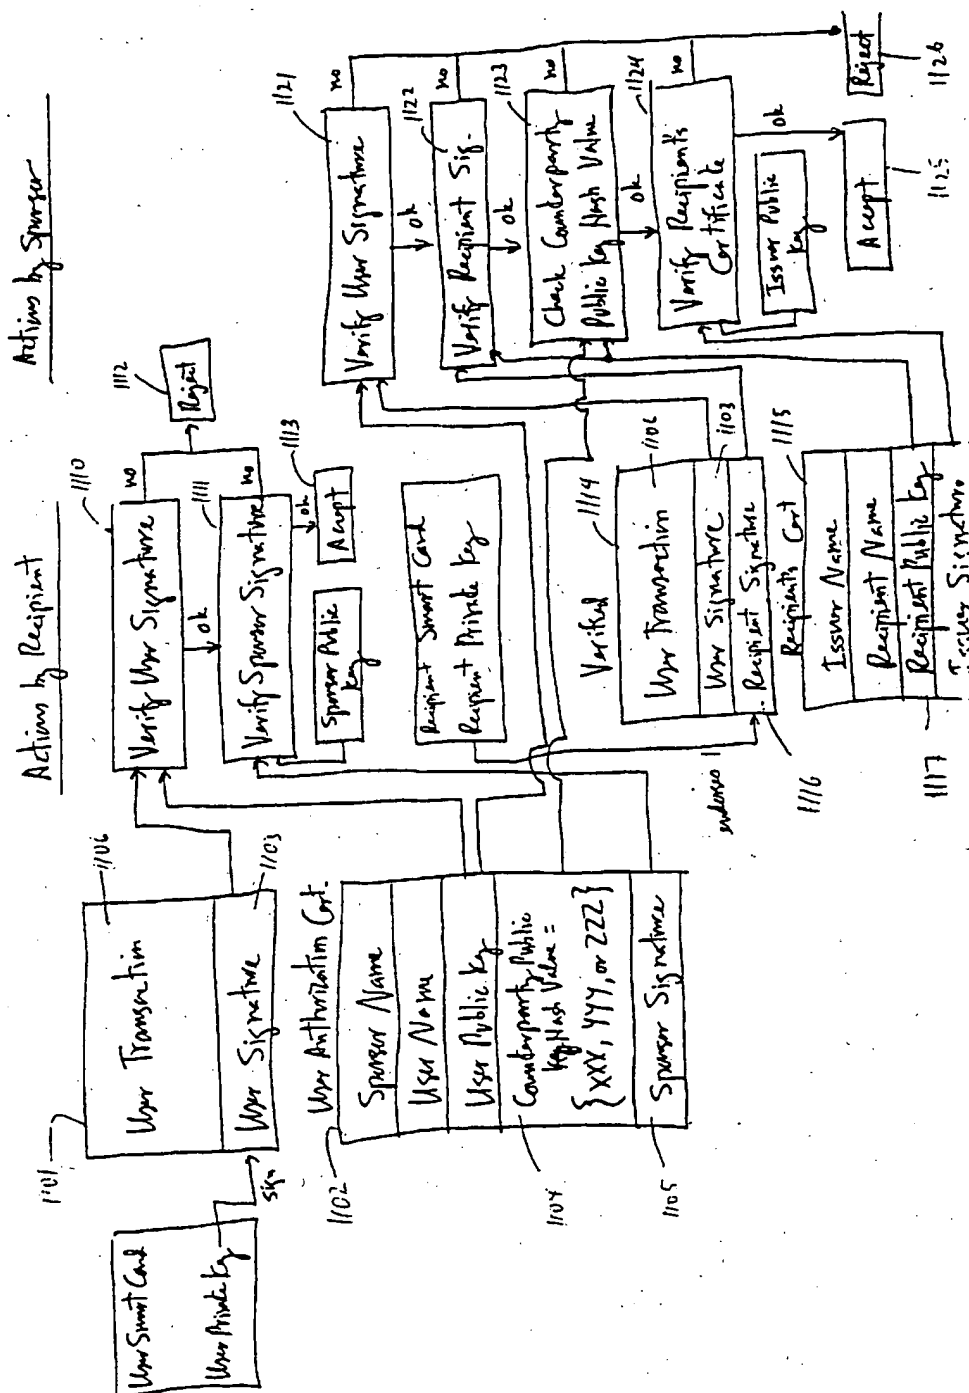 User Smart Card
User Private Key
sign
1101
User Transaction
1106
User Signature
1103
User Authorization Cert.
1102
Sponsor Name
User Name
User Public Key
Counterparty Public
Key Hash Value =
{XXX, YYY, or ZZZ}
1104
Sponsor Signature
1105
Actions by Recipient
1110
Verify User Signature
no
ok
1111
Verify Sponsor Signature
no
ok
Reject
1112
Sponsor Public
Key
Accept
1113
Recipient Smart Card
Recipient Private Key
endorses
Verified
1114
User Transaction
1106
User Signature
1103
Recipient Signature
1116
Recipients Cert
1115
Issuer Name
Recipient Name
Recipient Public Key
1117
Issuer Signature
Actions by Sponsor
1121
Verify User Signature
no
ok
1122
Verify Recipient Sig.
no
ok
1123
Check Counterparty
Public Key Hash Value
no
ok
1124
Verify Recipients
Certificate
no
ok
Issuer Public
Key
Accept
1125
Reject
1126